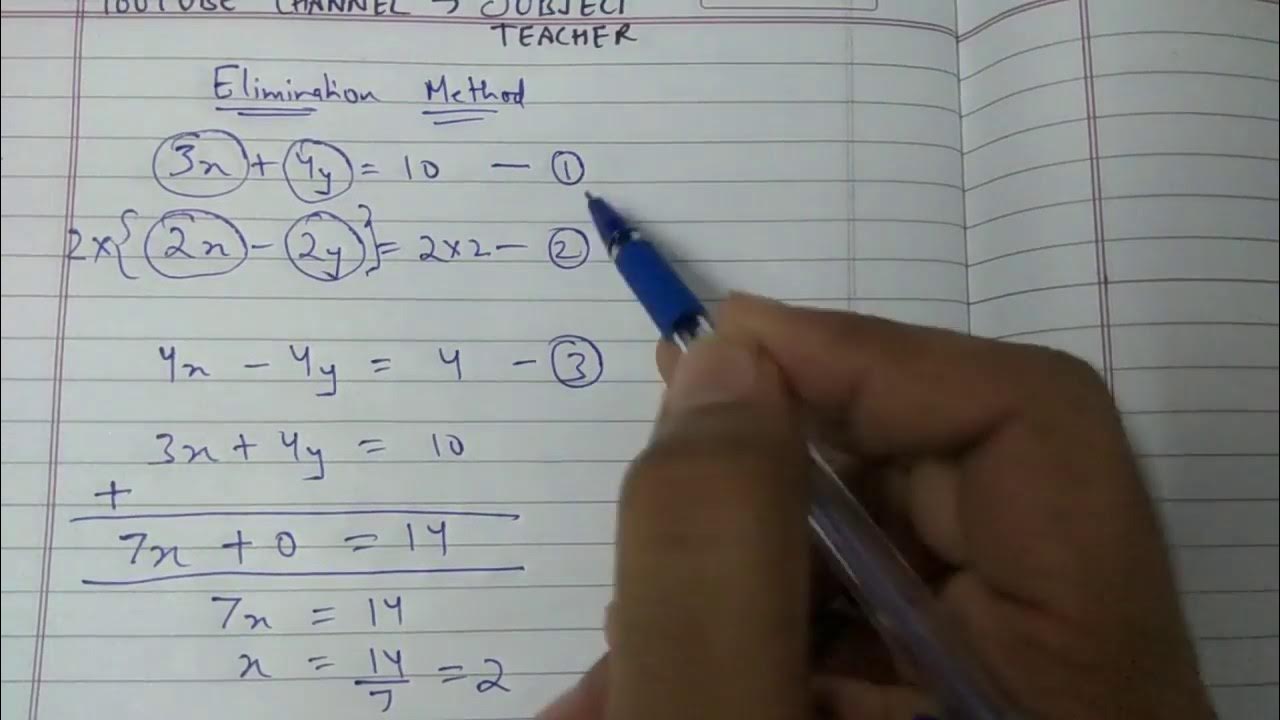 YOUTUBE CHANNEL → SUBJECT
TEACHER
Elimination Method
3x + 4y = 10 — ①
2×{2x - 2y} = 2×2 — ②
4x - 4y = 4 - ③
3x + 4y = 10
+
7x + 0 = 14
7x = 14
x = 14/7 = 2